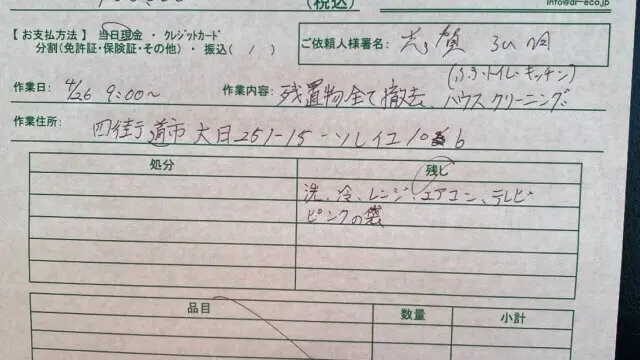 (税込)
info@dr-eco.jp
【お支払方法】 当日現金 ・ クレジットカード
分割(免許証・保険証・その他) ・ 振込( / )
ご依頼人様署名:
作業日: 4/26 9:00～
作業内容: 残置物全て撤去 ハウスクリーニング
(ふろ・トイレ・キッチン)
作業住所: 四街道市大日251-15
処分
残し
洗、冷、レンジ、エアコン、テレビ
ピンクの袋
品目 数量 小計